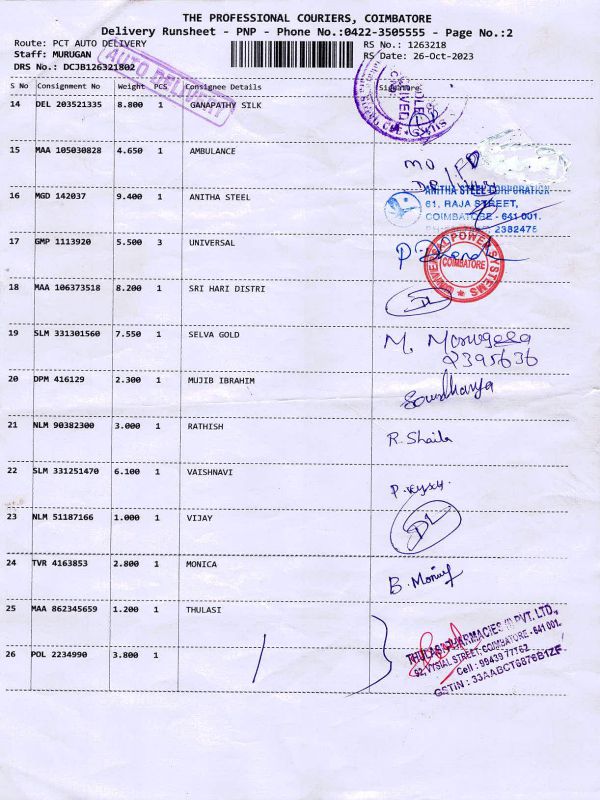 THE PROFESSIONAL COURIERS, COIMBATORE
Delivery Runsheet - PNP - Phone No.:0422-3505555 - Page No.:2
Route: PCT AUTO DELIVERY RS No.: 1263218
Staff: MURUGAN RS Date: 26-Oct-2023
DRS No.: DCJB126321802
AUTO DELIVERY
S No Consignment No Weight PCS Consignee Details Signature
14 DEL 203521335 8.800 1 GANAPATHY SILK
15 MAA 105030828 4.650 1 AMBULANCE
16 MGD 142037 9.400 1 ANITHA STEEL
ANITHA STEEL CORPORATION
61, RAJA STREET,
COIMBATORE - 641 001.
2382475
17 GMP 1113920 5.500 3 UNIVERSAL
UNIVERSAL POWER SYSTEMS
COIMBATORE
18 MAA 106373518 8.200 1 SRI HARI DISTRI
DL
19 SLM 331301560 7.550 1 SELVA GOLD
M.
2395636
20 DPM 416129 2.300 1 MUJIB IBRAHIM
Soundharya
21 NLM 90382300 3.000 1 RATHISH
R. Shaila
22 SLM 331251470 6.100 1 VAISHNAVI
23 NLM 51187166 1.000 1 VIJAY
DL
24 TVR 4163853 2.800 1 MONICA
B.
25 MAA 862345659 1.200 1 THULASI
THULASI PHARMACIES (I) PVT. LTD.,
92, VYSIAL STREET, COIMBATORE - 641 001.
Cell : 99439 77162
GSTIN : 33AABCT6876B1ZF
26 POL 2234990 3.800 1